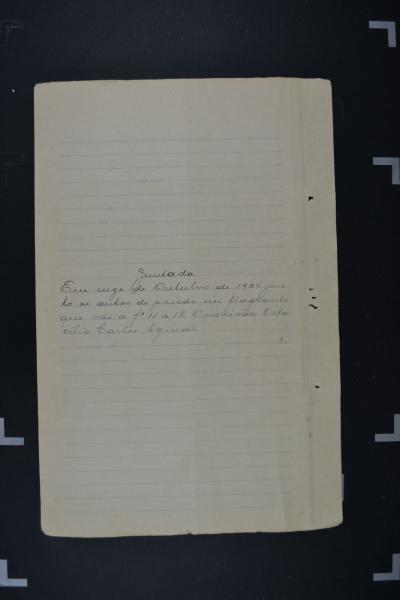 Juntada
Em onze de Outubro de 19 jun-
to os autos de prisão em flagrante
que vão a fs 11 a 18. O escrivão, Octa-
cilio Carlos Aguiar